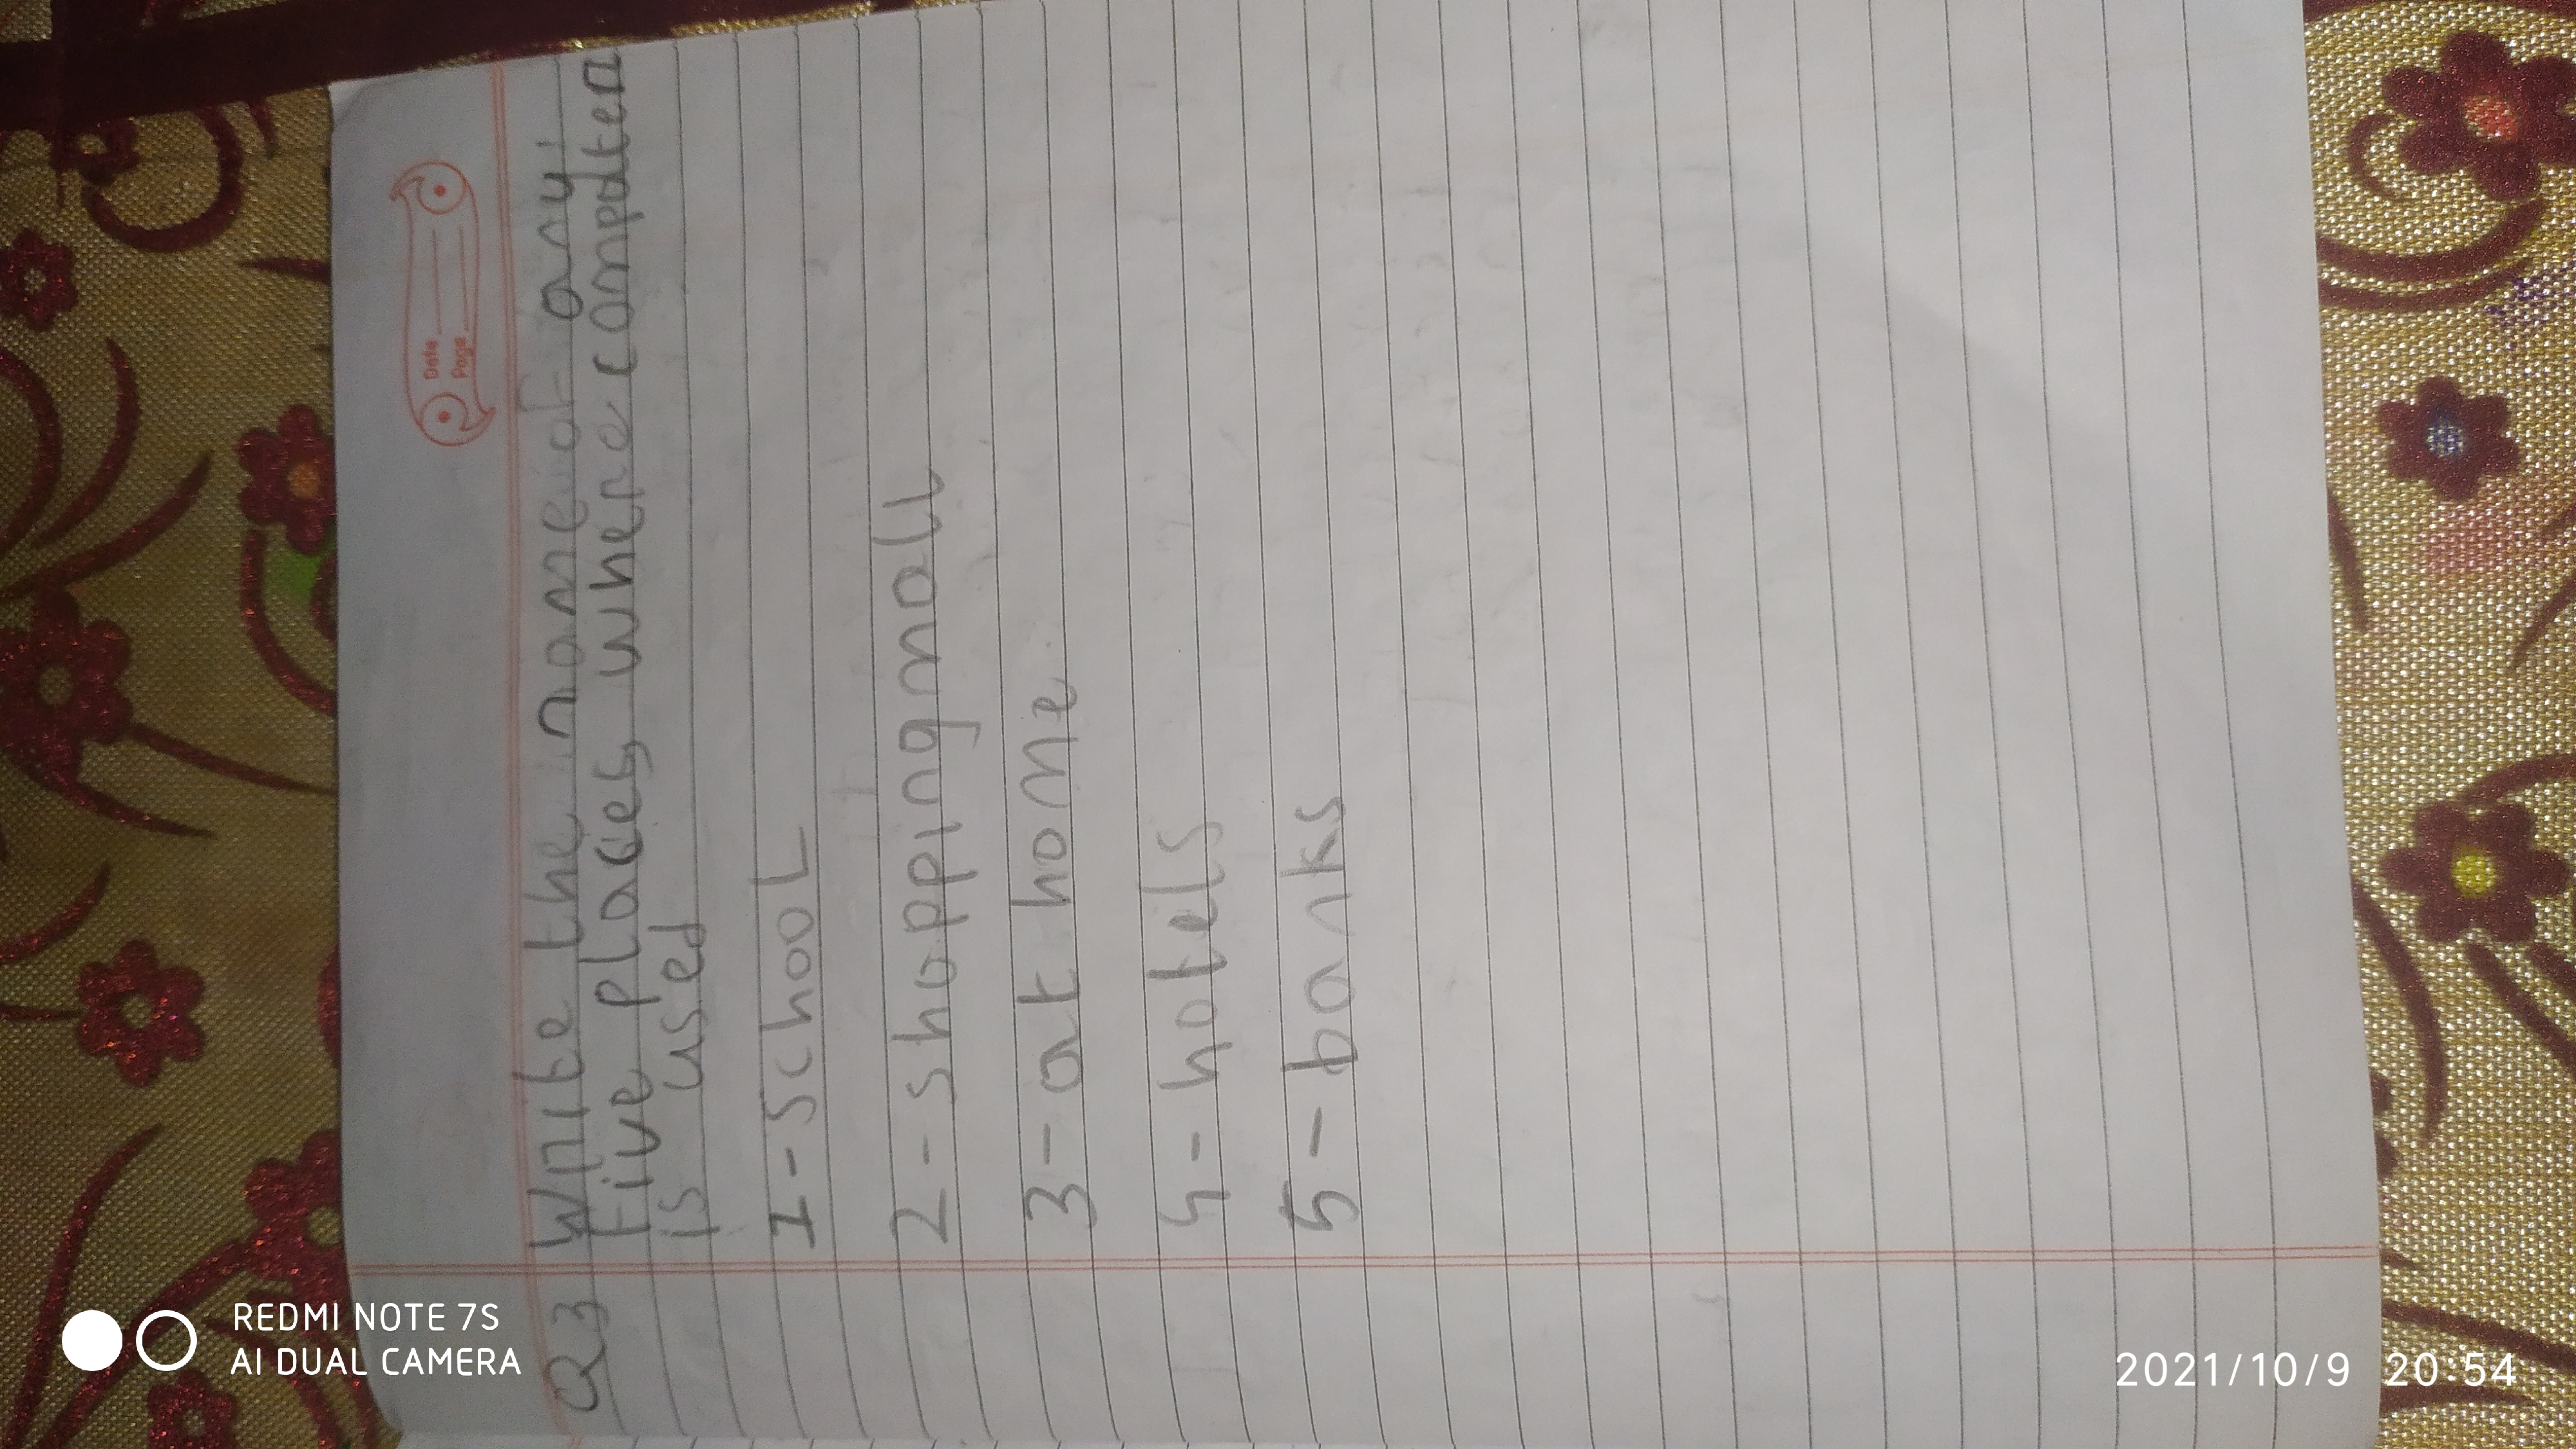 Date
Page
Q3 Write the name of any
Five places where computer
is used
1 - School
2 - shopping mall
3 - at home
4 - hotels
5 - banks
REDMI NOTE 7S
AI DUAL CAMERA
2021/10/9 20:54